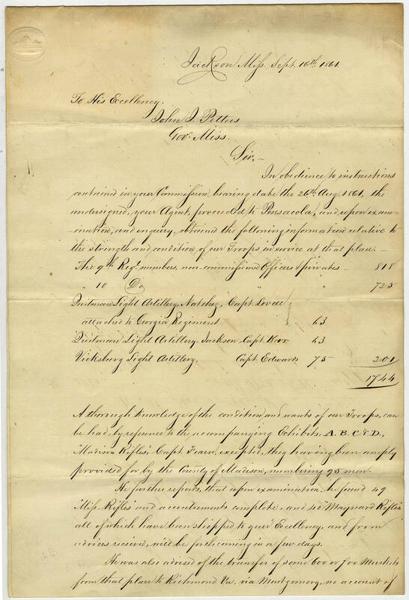 Jackson Miss. Sept. 16th 1861.
To His Excellency
John J. Pettus
Gov. Miss.
Sir,—
In obedience to instructions
contained in your Commission, bearing date the 26th Aug. 1861, the
undersigned, your Agent, proceeded to Pensacola, and upon exam-
ination, and enquiry, obtained the following information relative to
the strength and condition of our Troops in service at that place.
The 9th Regt. numbers, non-commissioned Officers & privates — 818
" 10 Do 725
Quitman Light Artillery, Natchez, Capt. Lovell
attached to Georgia Regiment 63
Quitman Light Artillery, Jackson, Capt. Kerr 63
Vicksburg Light Artillery, Capt. Edwards 75 201
1744
A thorough knowledge of the condition and wants of our Troops, can
be had, by reference to the accompanying Exhibits, A. B. C & D.,
Madison Rifles, Capt. excepted, they having been amply
provided for by the County of Madison, numbering 93 men.
He further reports, that upon examination, he found 49
Miss. Rifles and accoutrements complete, and Maynard Rifles
all of which have been shipped to your Excellency, and from
advices received, will be forthcoming in a few days.
He was also advised of the transfer of some 600 or 700 Muskets
from that place to Richmond Va. via Montgomery, no account of